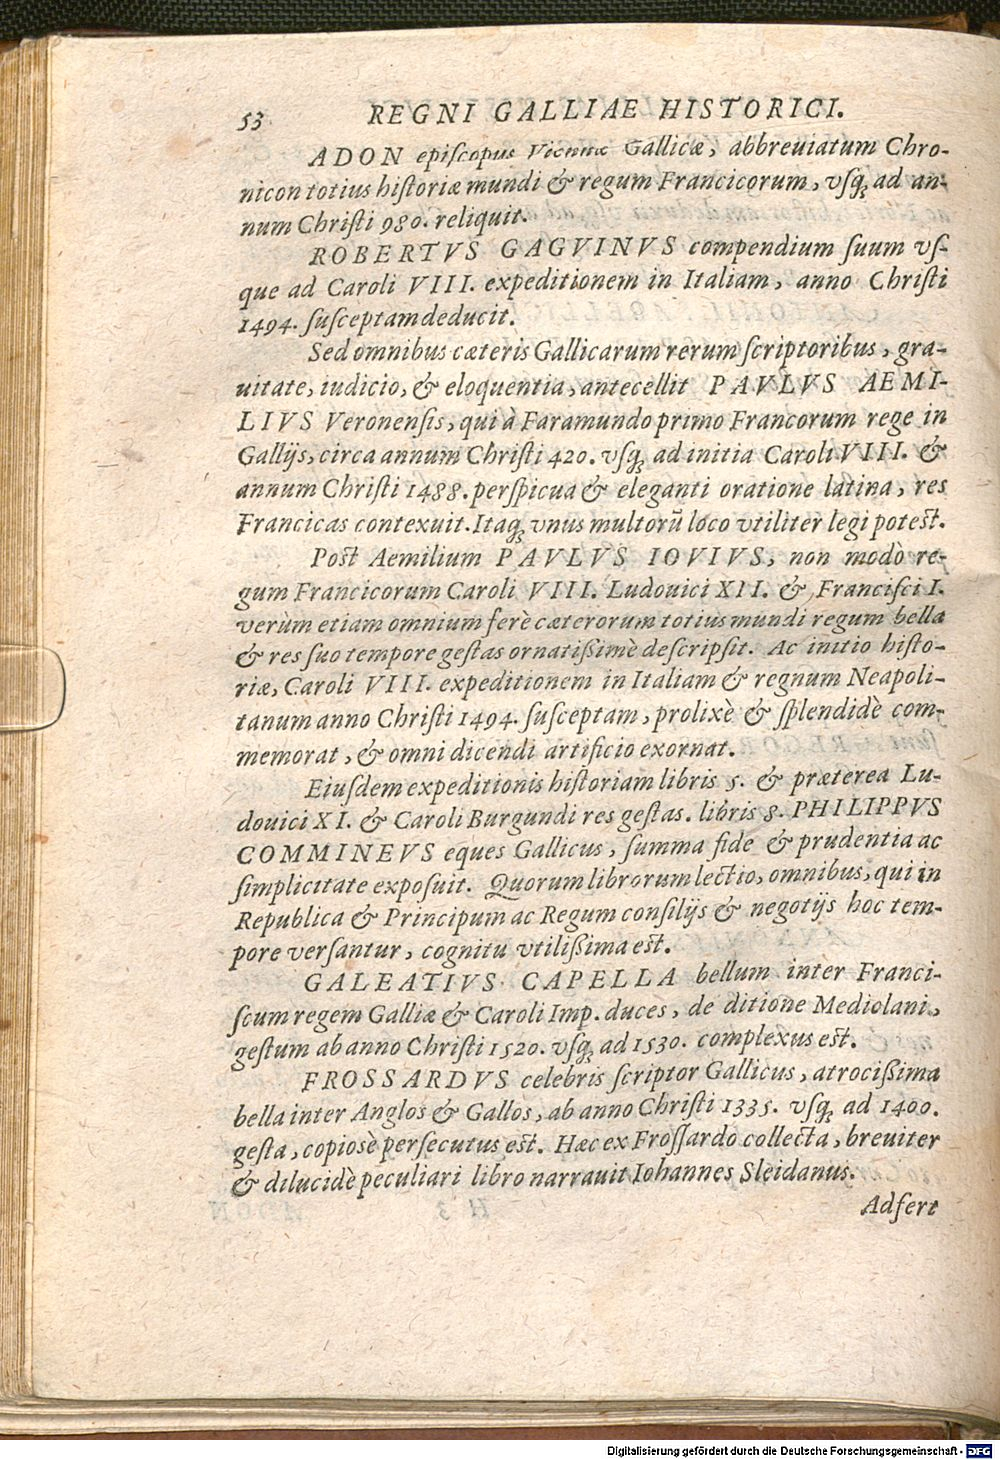 53 REGNI GALLIAE HISTORICI.
ADON episcopus Viennæ Gallicæ, abbreuiatum Chro-
nicon totius historiæ mundi & regum Francicorum, vsq; ad an-
num Christi 980. reliquit.
ROBERTVS GAGVINVS compendium suum vs-
que ad Caroli VIII. expeditionem in Italiam, anno Christi
1494. susceptam deducit.
Sed omnibus cæteris Gallicarum rerum scriptoribus, gra-
uitate, iudicio, & eloquentia, antecellit PAVLVS AEMI-
LIVS Veronensis, qui à Faramundo primo Francorum rege in
Gallijs, circa annum Christi 420. vsq; ad initia Caroli VIII. &
annum Christi 1488. perspicua & eleganti oratione latina, res
Francicas contexuit. Itaq; vnus multorū loco vtiliter legi potest.
Post Aemilium PAVLVS IOVIVS, non modò re-
gum Francicorum Caroli VIII. Ludouici XII. & Francisci I.
verùm etiam omnium ferè cæterorum totius mundi regum bella
& res suo tempore gestas ornatißimè descripsit. Ac initio histo-
riæ, Caroli VIII. expeditionem in Italiam & regnum Neapoli-
tanum anno Christi 1494. susceptam, prolixè & splendidè com-
memorat, & omni dicendi artificio exornat.
Eiusdem expeditionis historiam libris 5. & præterea Lu-
douici XI. & Caroli Burgundi res gestas. libris 8. PHILIPPVS
COMMINEVS eques Gallicus, summa fide & prudentia ac
simplicitate exposuit. Quorum librorum lectio, omnibus, qui in
Republica & Principum ac Regum consilijs & negotijs hoc tem-
pore versantur, cognitu vtilißima est.
GALEATIVS CAPELLA bellum inter Franci-
scum regem Galliæ & Caroli Imp. duces, de ditione Mediolani,
gestum ab anno Christi 1520. vsq; ad 1530. complexus est.
FROSSARDVS celebris scriptor Gallicus, atrocißima
bella inter Anglos & Gallos, ab anno Christi 1335. vsq; ad 1400.
gesta, copiosè persecutus est. Hæc ex Frossardo collecta, breuiter
& dilucidè peculiari libro narrauit Iohannes Sleidanus.
Adfert
Digitalisierung gefördert durch die Deutsche Forschungsgemeinschaft - DFG